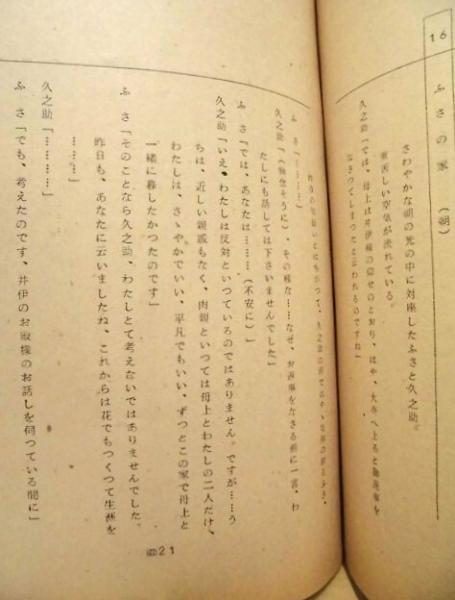 16 ふさの家 (朝)
さわやかな朝の光の中に対座したふさと久之助。
重苦しい空気が流れている。
久之助「では、母上は井伊様の仰せのとおり、はや、大奥へ上ると御返事を
なさつてしまつたと云われるのですね」
ふさ「………」
久之助「(無念そうに)、その様な……なぜ、お返事をなさる前に一言、わ
たしにも話しては下さいませんでした」
ふさ「では、あなたは……(不安に)」
久之助「いえ、わたしは反対といつているのではありません。ですが……う
ちは、近しい親戚もなく、肉親といつては母上とわたしの二人だけ、
わたしは、さゝやかでいい、平凡でもいい、ずつとこの家で母上と
一緒に暮したかつたのです」
ふさ「そのことなら久之助、わたしとて考えないではありませんでした。
昨日も、あなたに云いましたね、これからは花でもつくつて生涯を
…………」
久之助「…………」
ふさ「でも、考えたのです、井伊のお殿様のお話しを伺つている間に」
21